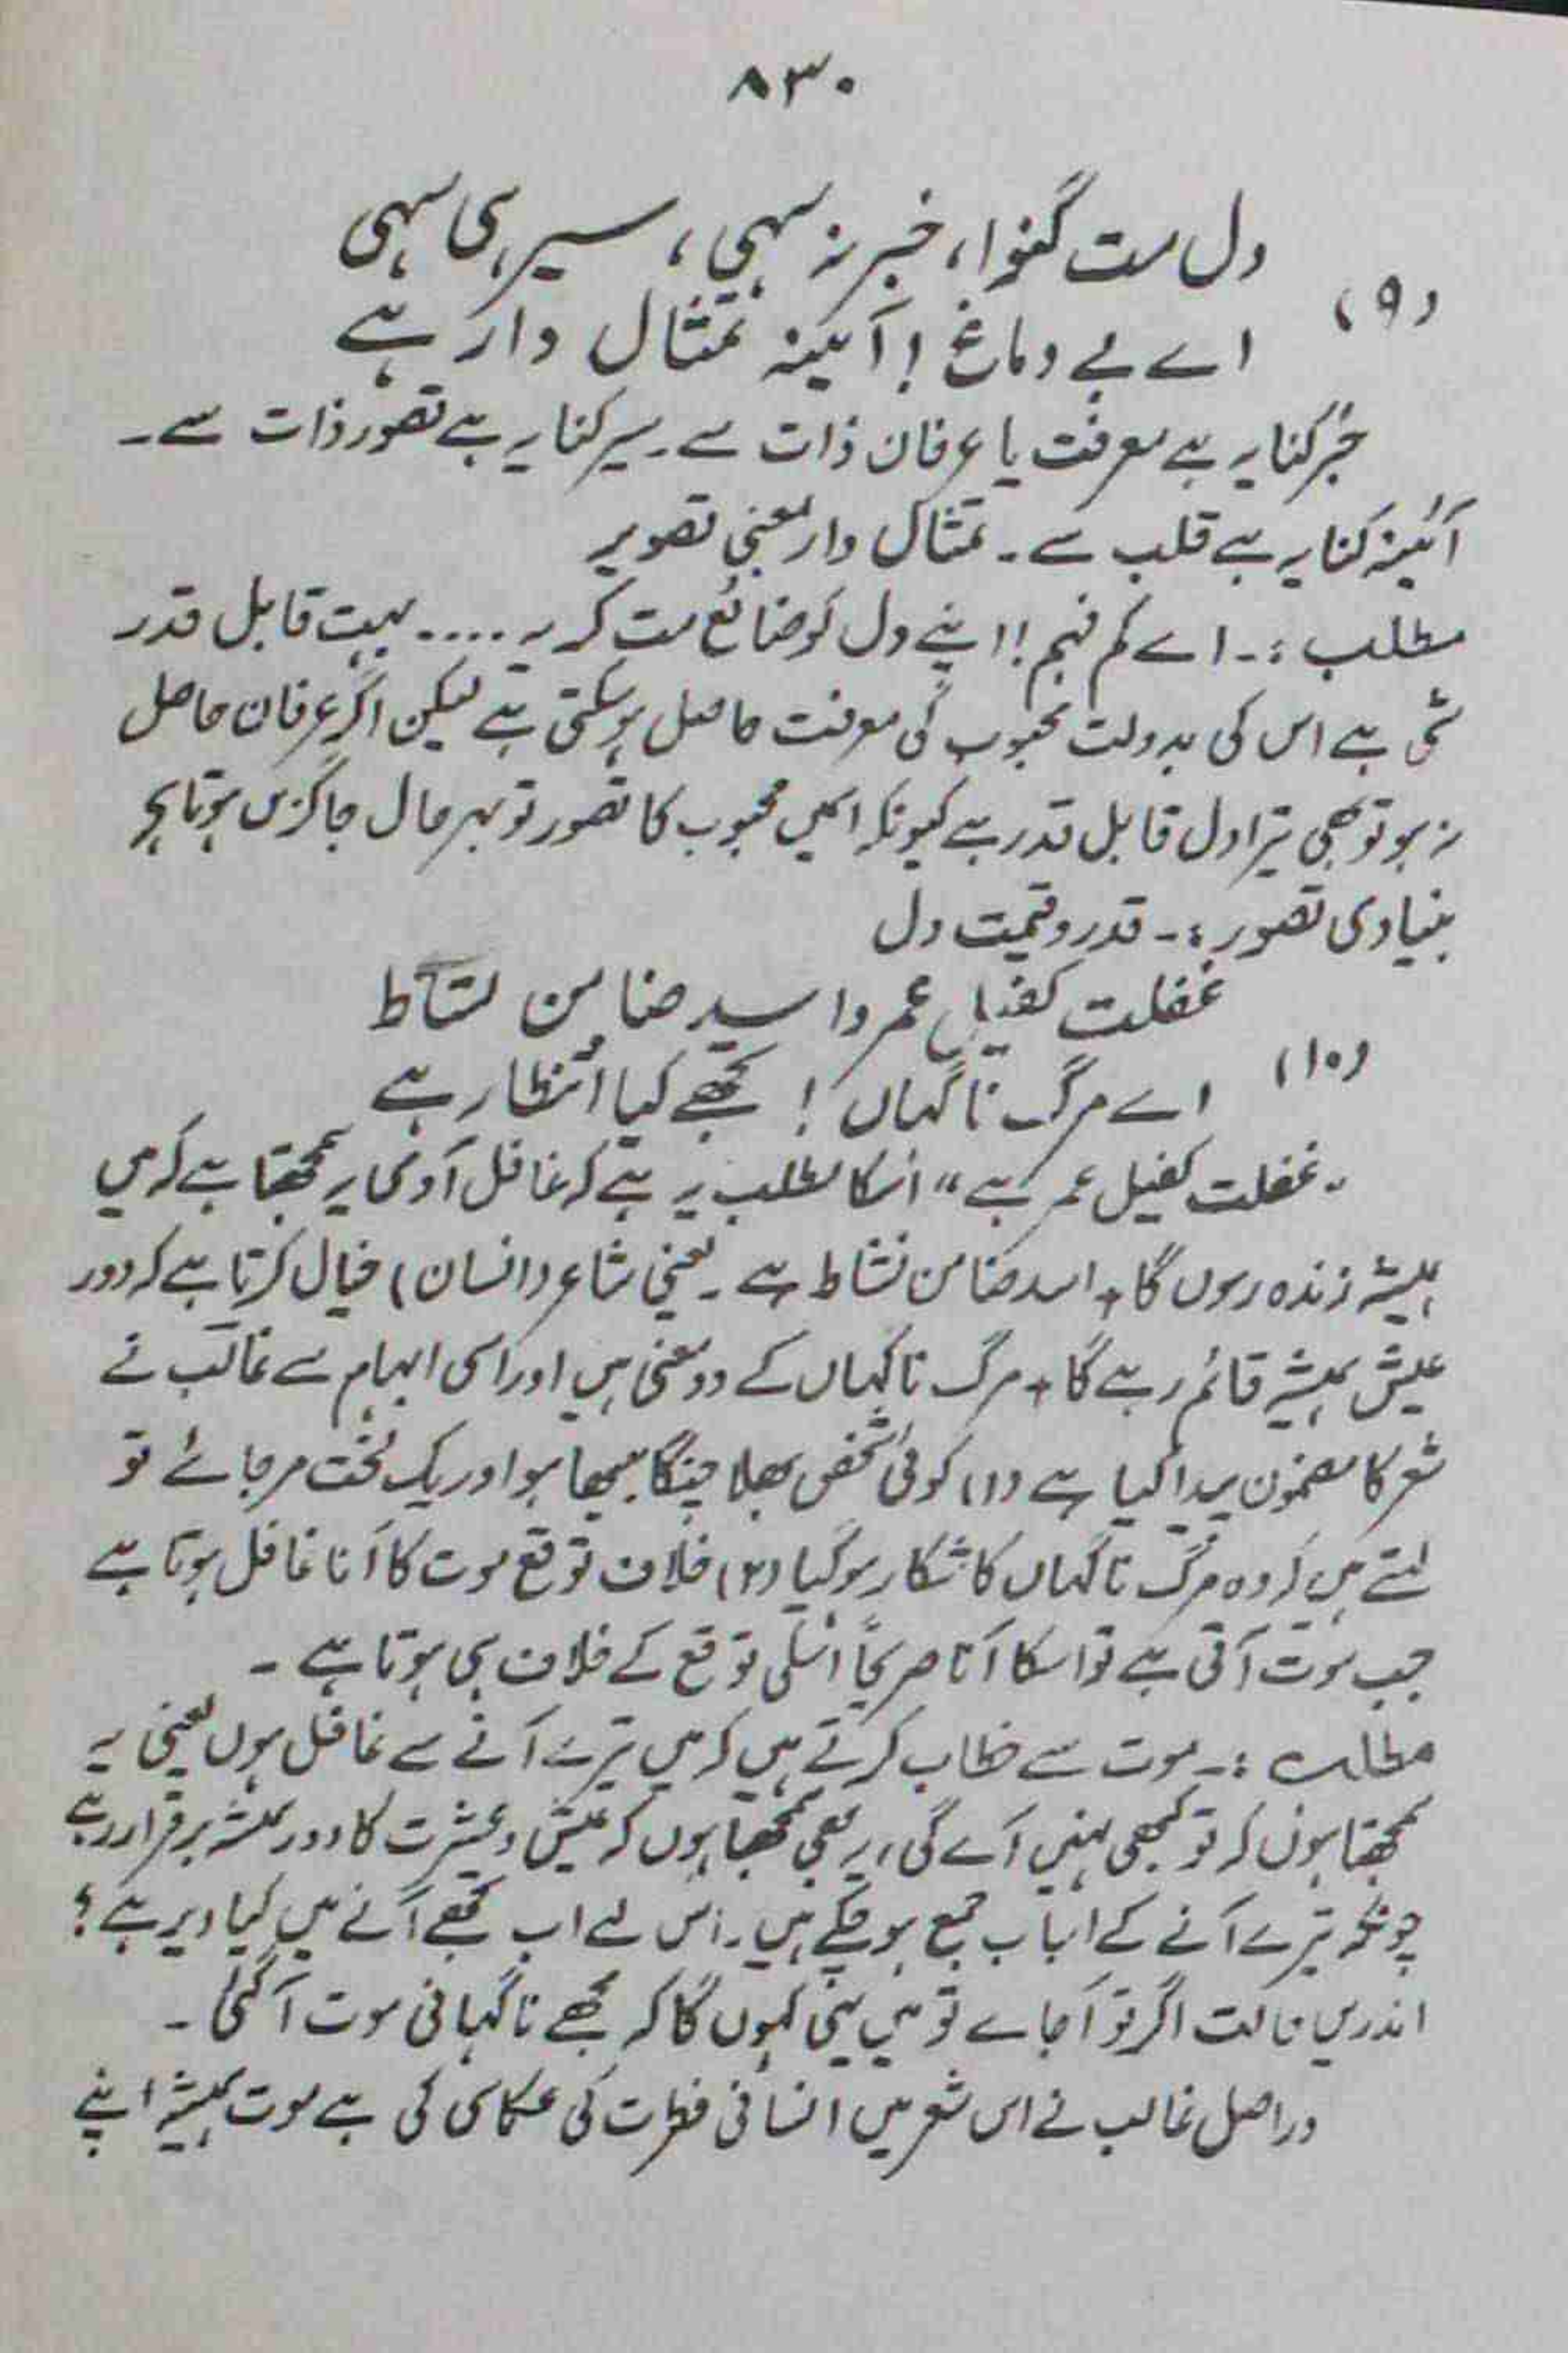 ۸۳۰
دل مت گنوا، خبر نہ سہی، سیر ہی سہی
(۹)
اے بے دماغ! آئینہ تمثال دار ہے
خبر کنایہ ہے معرفت یا عرفان ذات سے۔ سیر کنایہ ہے تصور ذات سے۔
آئینہ کنایہ ہے قلب سے۔ تمثال دار بمعنی تصویر
مطلب :۔ اے کم فہم! اپنے دل کو ضائع مت کر یہ .... بہت قابل قدر
شی ہے اس کی بدولت محبوب کی معرفت حاصل ہوسکتی ہے لیکن اگر عرفان حاصل
نہ ہو تو بھی تیرا دل قابل قدر ہے کیونکہ اسمیں محبوب کا تصور تو بہرحال جاگزیں ہوتا ہے
بنیادی تصور :۔ قدر و قیمت دل
غفلت کفیل عمر و اسد ضامن نشاط
(۱۰)
اے مرگ ناگہاں! تجھے کیا انتظار ہے
"غفلت کفیل عمر ہے" اسکا مطلب یہ ہے کہ غافل آدمی یہ سمجھتا ہے کہ میں
ہمیشہ زندہ رہوں گا، اسد ضامن نشاط ہے۔ یعنی شاعر (انسان) خیال کرتا ہے کہ دور
عیش ہمیشہ قائم رہے گا، مرگ ناگہاں کے دو معنی ہیں اور اسی ابہام سے غالب نے
شعر کا مضمون پیدا کیا ہے (۱) کوئی شخص بھلا چنگا بیٹھا ہو اور یک لخت مرجائے تو
کہتے ہیں کہ وہ مرگ ناگہاں کا شکار ہوگیا (۲) خلاف توقع موت کا آنا غافل ہوتا ہے
جب موت آتی ہے تو اسکا آنا صریحاً اسکی توقع کے خلاف ہی ہوتا ہے۔
مطلب :۔ موت سے خطاب کرتے ہیں کہ میں تیرے آنے سے غافل ہوں یعنی یہ
سمجھتا ہوں کہ تو کبھی نہیں آے گی، یہ بھی سمجھتا ہوں کہ عیش و عشرت کا دور ہمیشہ برقرار رہے
چونکہ تیرے آنے کے اسباب جمع ہوچکے ہیں۔ اس لئے اب تجھے آنے میں کیا دیر ہے؟
اندریں حالت اگر تو آجاے تو میں یہی کہوں گا کہ مجھے ناگہانی موت آگئی۔
دراصل غالب نے اس شعر میں انسانی فطرت کی عکاسی کی ہے موت ہمیشہ اپنے